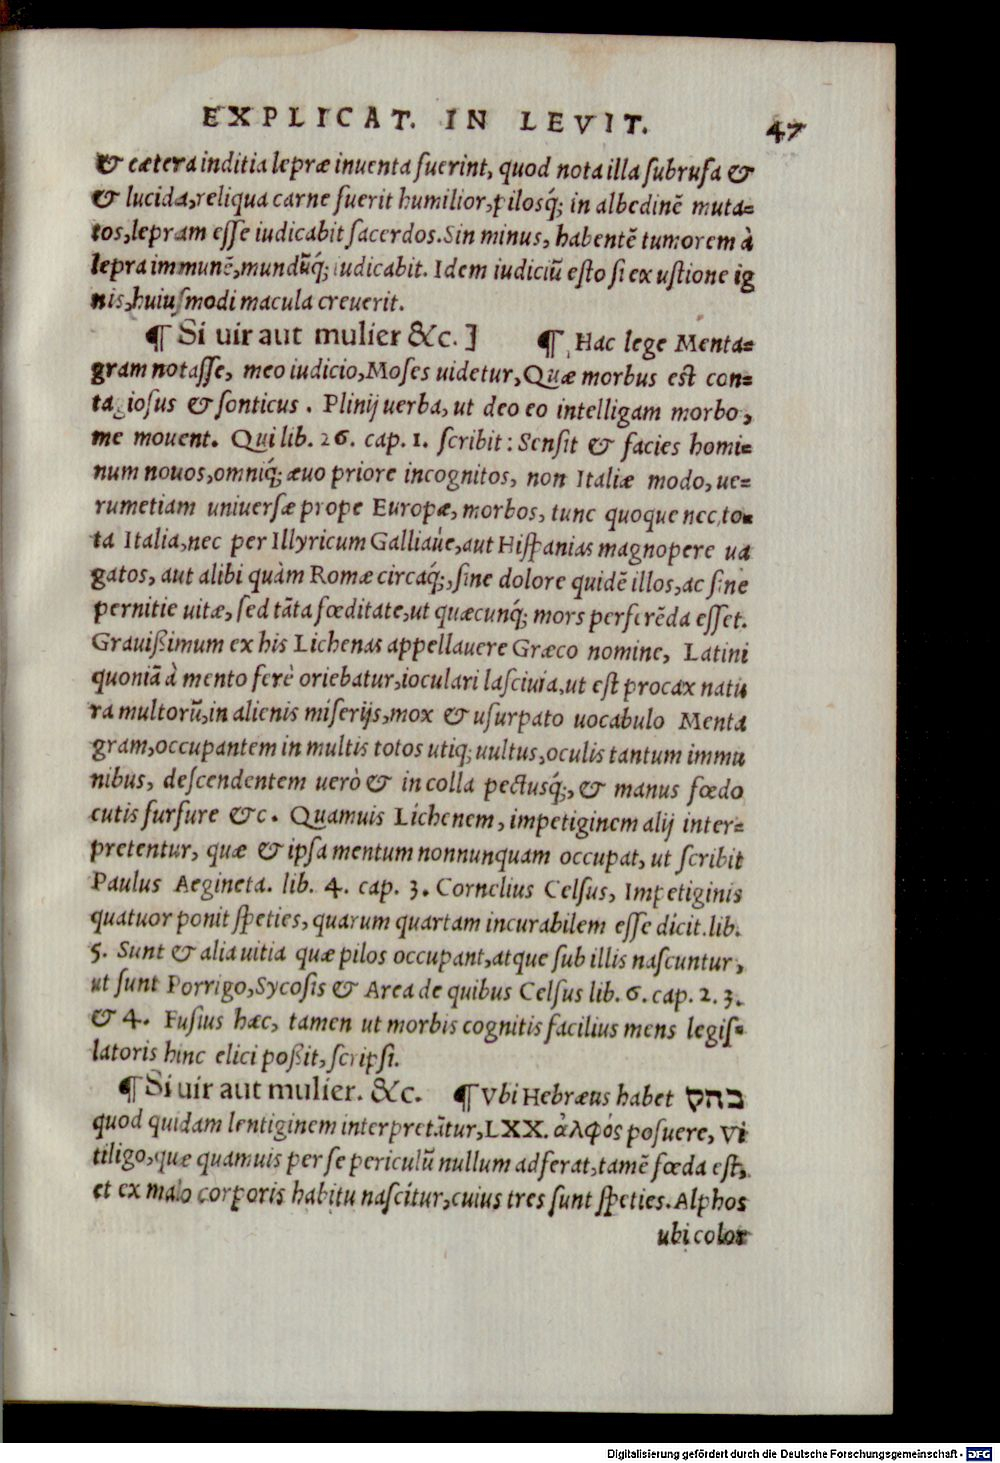 EXPLICAT. IN LEVIT. 47
& cætera inditia lepræ inuenta fuerint, quod nota illa subrufa &
& lucida, reliqua carne fuerit humilior, pilosq́; in albedinē muta=
tos, lepram esse iudicabit sacerdos. Sin minus, habentē tumorem à
lepra immunē, mundūq́; iudicabit. Idem iudiciū esto si ex ustione ig
nis, huiusmodi macula creuerit.
¶ Si uir aut mulier &c. ] ¶ Hac lege Menta=
gram notasse, meo iudicio, Moses uidetur, Quæ morbus est con=
tagiosus & sonticus. Plinij uerba, ut deo eo intelligam morbo,
me mouent. Qui lib. 26. cap. 1. scribit: Sensit & facies homi=
num nouos, omniq́; æuo priore incognitos, non Italiæ modo, ue=
rumetiam uniuersæ prope Europæ, morbos, tunc quoque nec to=
ta Italia, nec per Illyricum Galliaúe, aut Hispanias magnopere ua
gatos, aut alibi quàm Romæ circaq́;, sine dolore quidē illos, ac sine
pernitie uitæ, sed tāta fœditate, ut quæcunq́; mors perferēda esset.
Grauißimum ex his Lichenas appellauere Græco nomine, Latini
quoniā à mento ferè oriebatur, ioculari lasciuia, ut est procax natu
ra multorū, in alienis miserijs, mox & usurpato uocabulo Menta
gram, occupantem in multis totos utiq; uultus, oculis tantum immu
nibus, descendentem uerò & in colla pectusq́;, & manus fœdo
cutis furfure &c. Quamuis Lichenem, impetiginem alij inter=
pretentur, quæ & ipsa mentum nonnunquam occupat, ut scribit
Paulus Aegineta. lib. 4. cap. 3. Cornelius Celsus, Impetiginis
quatuor ponit speties, quarum quartam incurabilem esse dicit. lib.
5. Sunt & alia uitia quæ pilos occupant, atque sub illis nascuntur,
ut sunt Porrigo, Sycosis & Area de quibus Celsus lib. 6. cap. 2. 3.
& 4. Fusius hæc, tamen ut morbis cognitis facilius mens legis=
latoris hinc elici poßit, scripsi.
¶ Si uir aut mulier. &c. ¶ Vbi Hebræus habet בהק
quod quidam lentiginem interpretātur, LXX. ἀλφός posuere, Vi
tiligo, quæ quamuis per se periculū nullum adferat, tamē fœda est,
et ex malo corporis habitu nascitur, cuius tres sunt speties. Alphos
ubi color
Digitalisierung gefördert durch die Deutsche Forschungsgemeinschaft - DFG